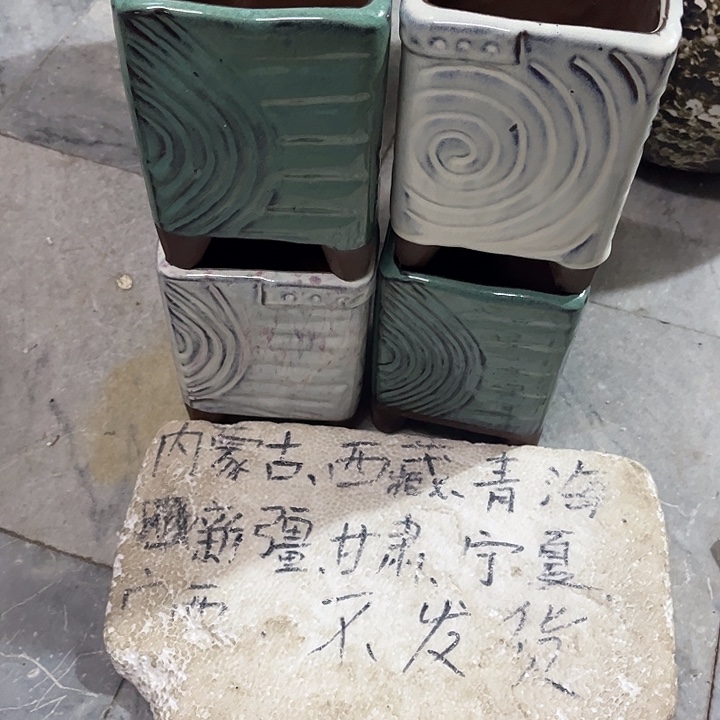 内蒙古、西藏、青海
新疆、甘肃、宁夏、
广西 不发货